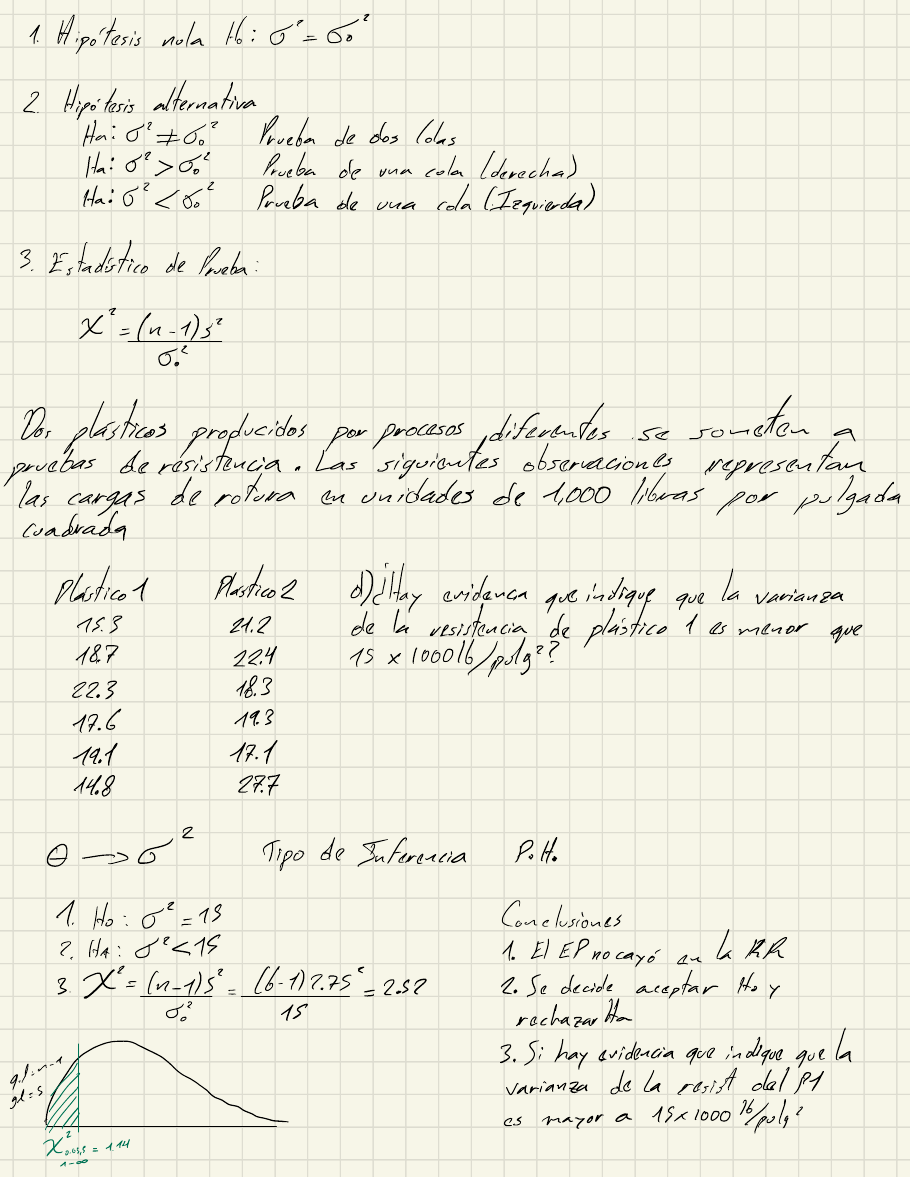 1. Hipótesis nula Ho: σ² = σ₀²
2. Hipótesis alternativa
Ha: σ² ≠ σ₀² Prueba de dos Colas
Ha: σ² > σ₀² Prueba de una cola (derecha)
Ha: σ² < σ₀² Prueba de una cola (Izquierda)
3. Estadístico de Prueba:
χ² = (n-1)s²
σ₀²
Dos plásticos producidos por procesos diferentes se someten a
pruebas de resistencia. Las siguientes observaciones representan
las cargas de rotura en unidades de 1,000 libras por pulgada
cuadrada
Plástico 1 Plastico 2 d) ¿Hay evidenca que indique que la varianza
15.3 21.2 de la resistencia de plástico 1 es menor que
18.7 22.4 15 x 1000 lb/pulg²?
22.3 18.3
17.6 19.3
19.1 17.1
14.8 27.7
θ → σ² Tipo de Inferencia P.H.
1. Ho: σ² = 15
2. HA: σ² < 15
3. χ² = (n-1)S² = (6-1)2.75² = 2.52
σ₀² 15
g.l = n-1
gl = 5
χ²0.95,5 = 1.14
1-∞
Conclusiones
1. El EP no cayó en la RR
2. Se decide aceptar Ho y
rechazar Ha
3. Si hay evidencia que indique que la
varianza de la resist del P1
es mayor a 15x1000 lb/pulg²